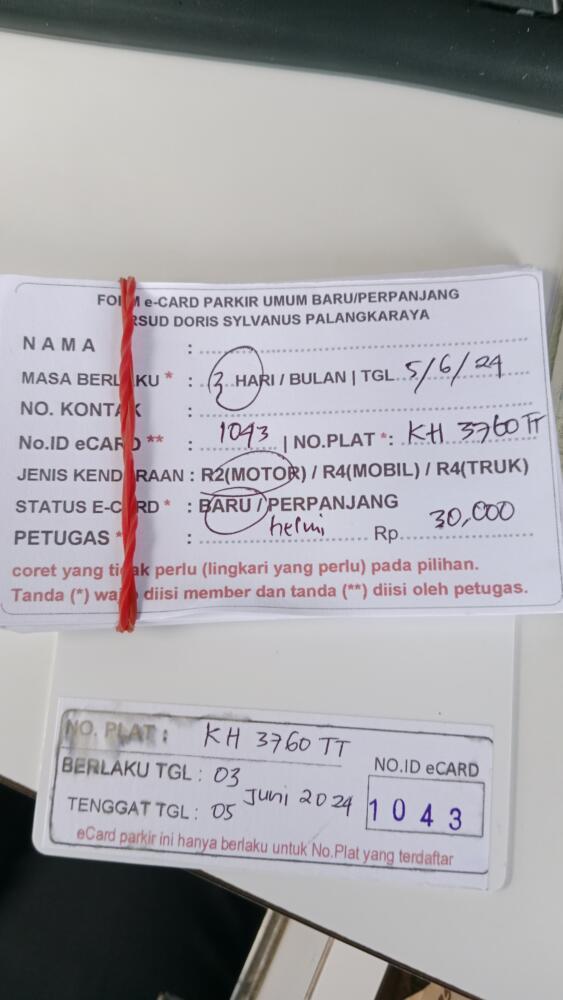 FORM e-CARD PARKIR UMUM BARU/PERPANJANG
RSUD DORIS SYLVANUS PALANGKARAYA
NAMA :
MASA BERLAKU * : 3 HARI / BULAN | TGL 5/6/24
NO. KONTAK :
No.ID eCARD ** : 1043 | NO.PLAT *: KH 3760 TT
JENIS KENDARAAN : R2(MOTOR) / R4(MOBIL) / R4(TRUK)
STATUS E-CARD * : BARU / PERPANJANG
PETUGAS * : helmi Rp. 30,000
coret yang tidak perlu (lingkari yang perlu) pada pilihan.
Tanda (*) wajib diisi member dan tanda (**) diisi oleh petugas.
NO. PLAT : KH 3760 TT
BERLAKU TGL : 03 Juni 2024
TENGGAT TGL : 05
NO.ID eCARD
1043
eCard parkir ini hanya berlaku untuk No.Plat yang terdaftar